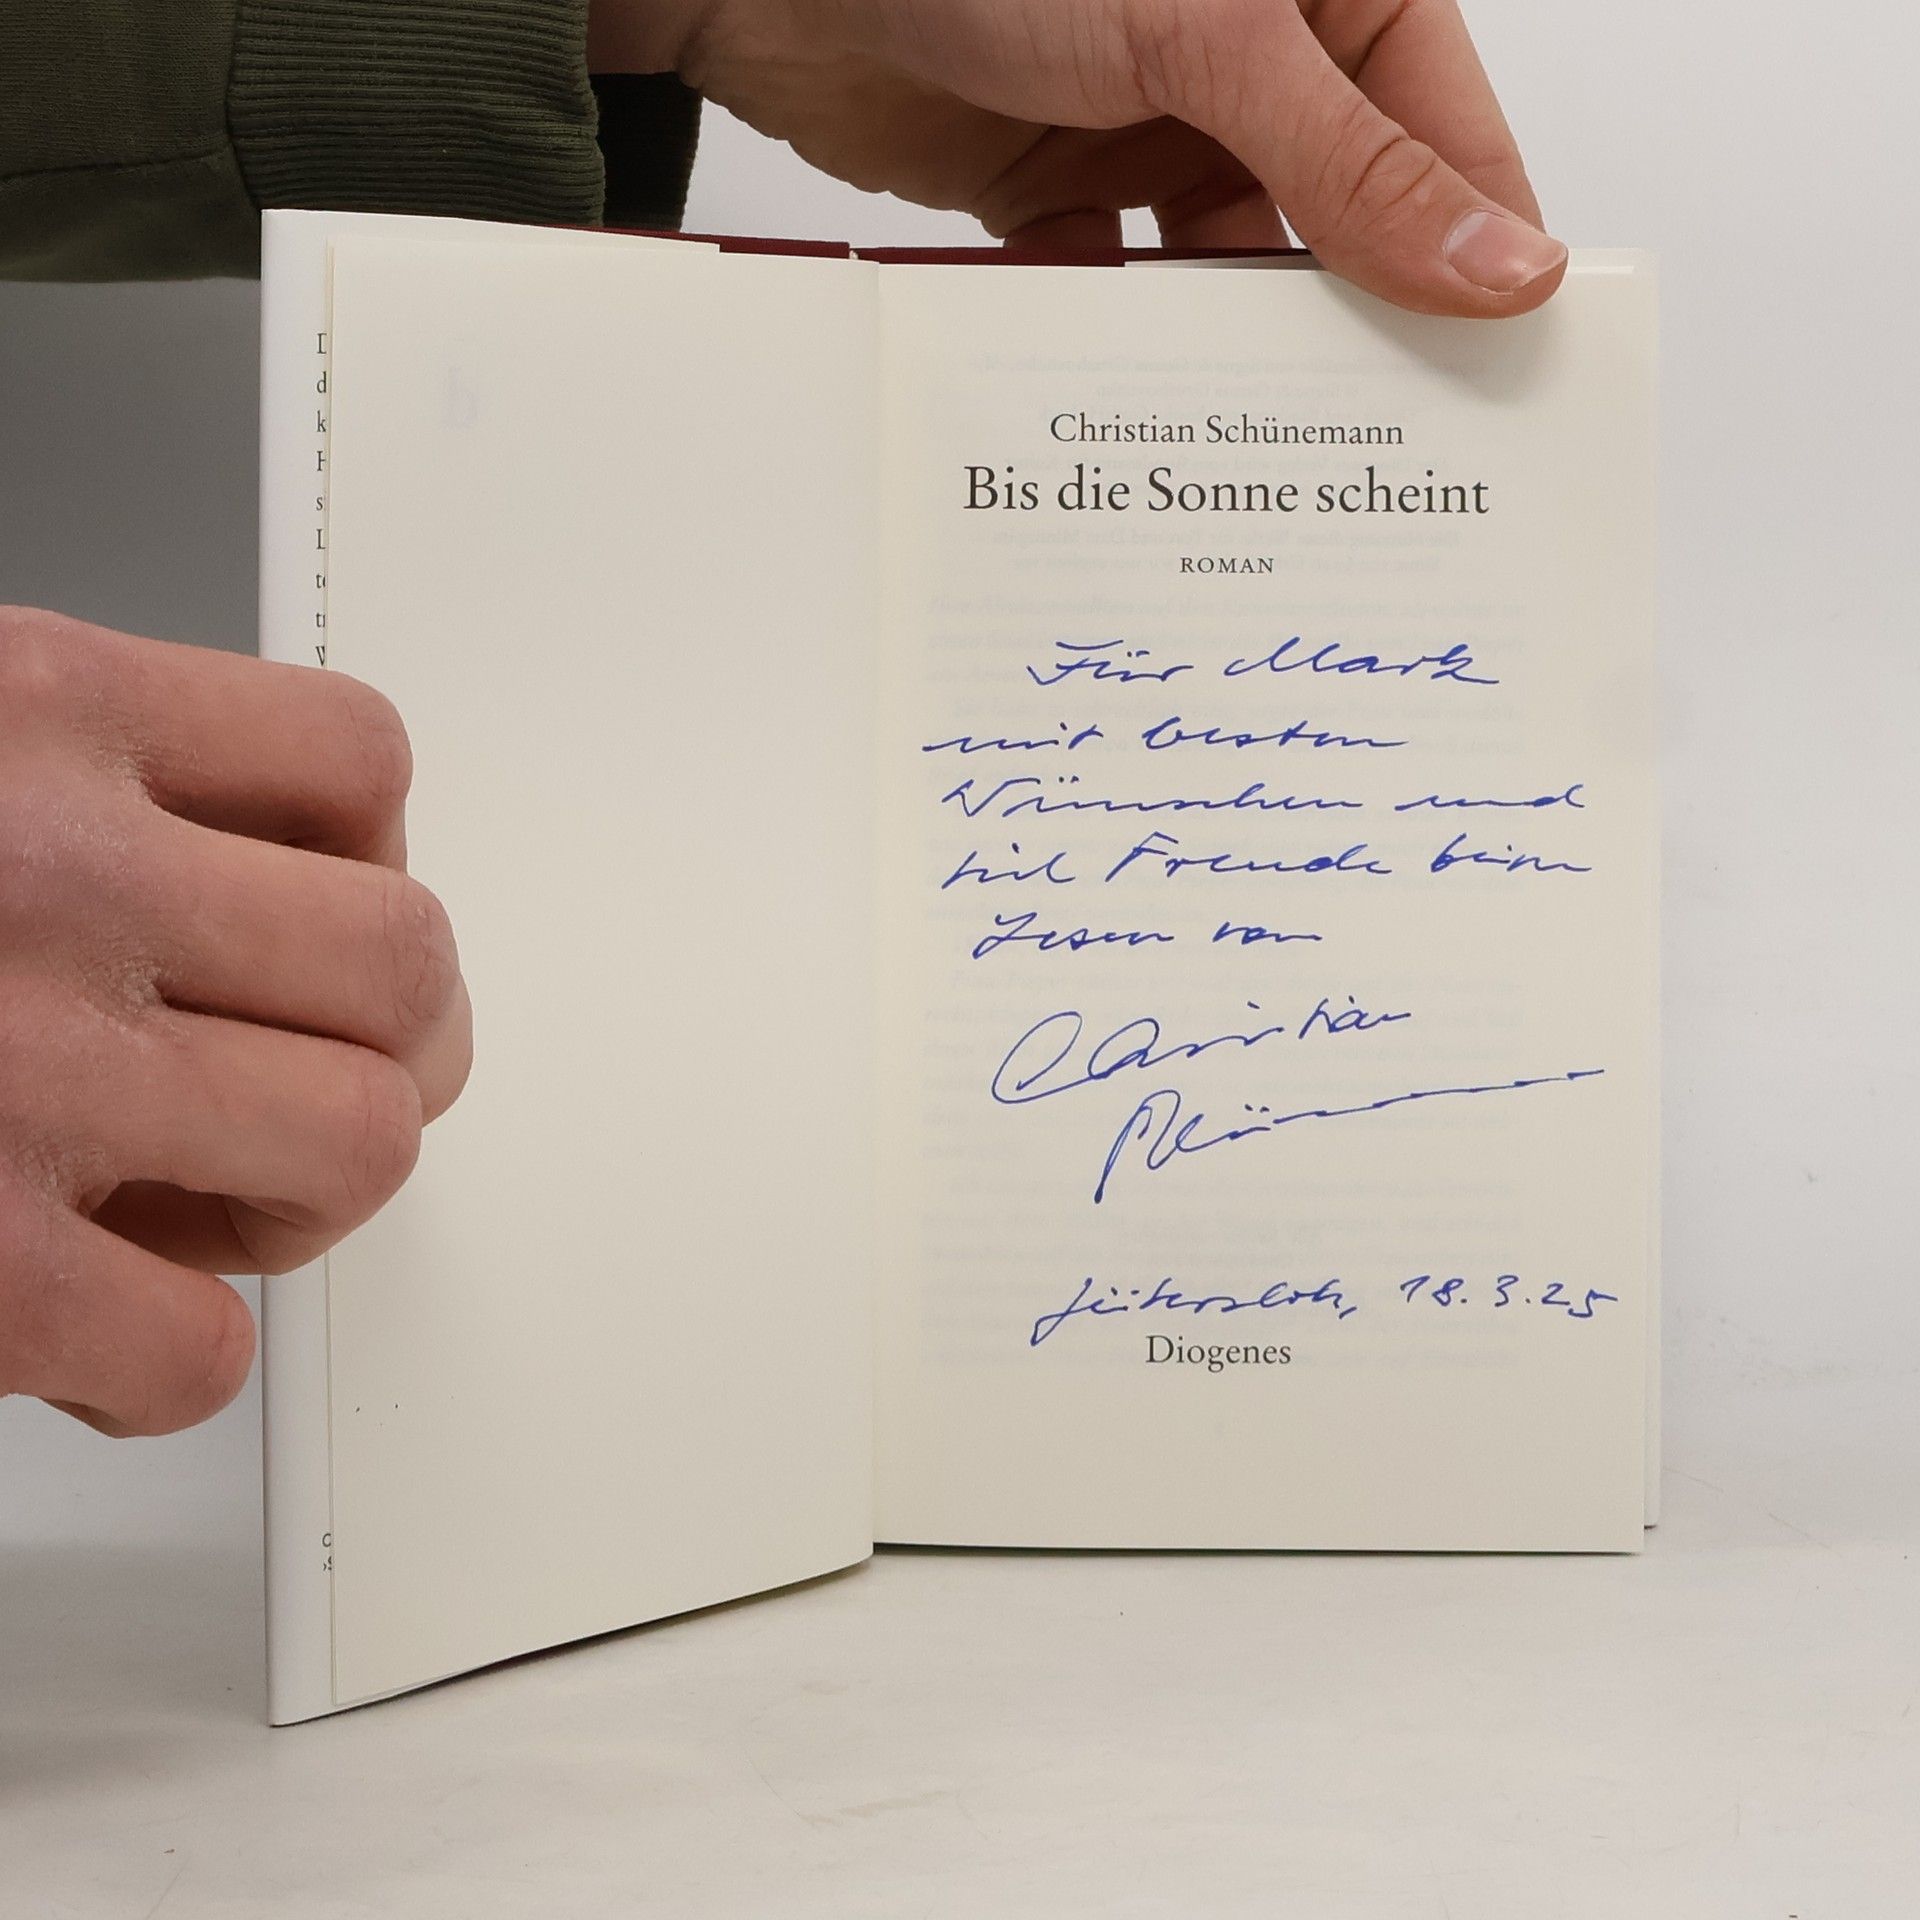 Christian Schünemann
Bis die Sonne scheint
ROMAN
Für Mark
mit besten
Wünschen und
viel Freude beim
Lesen von
Christian
Schünemann
Gütersloh, 18.3.25
Diogenes